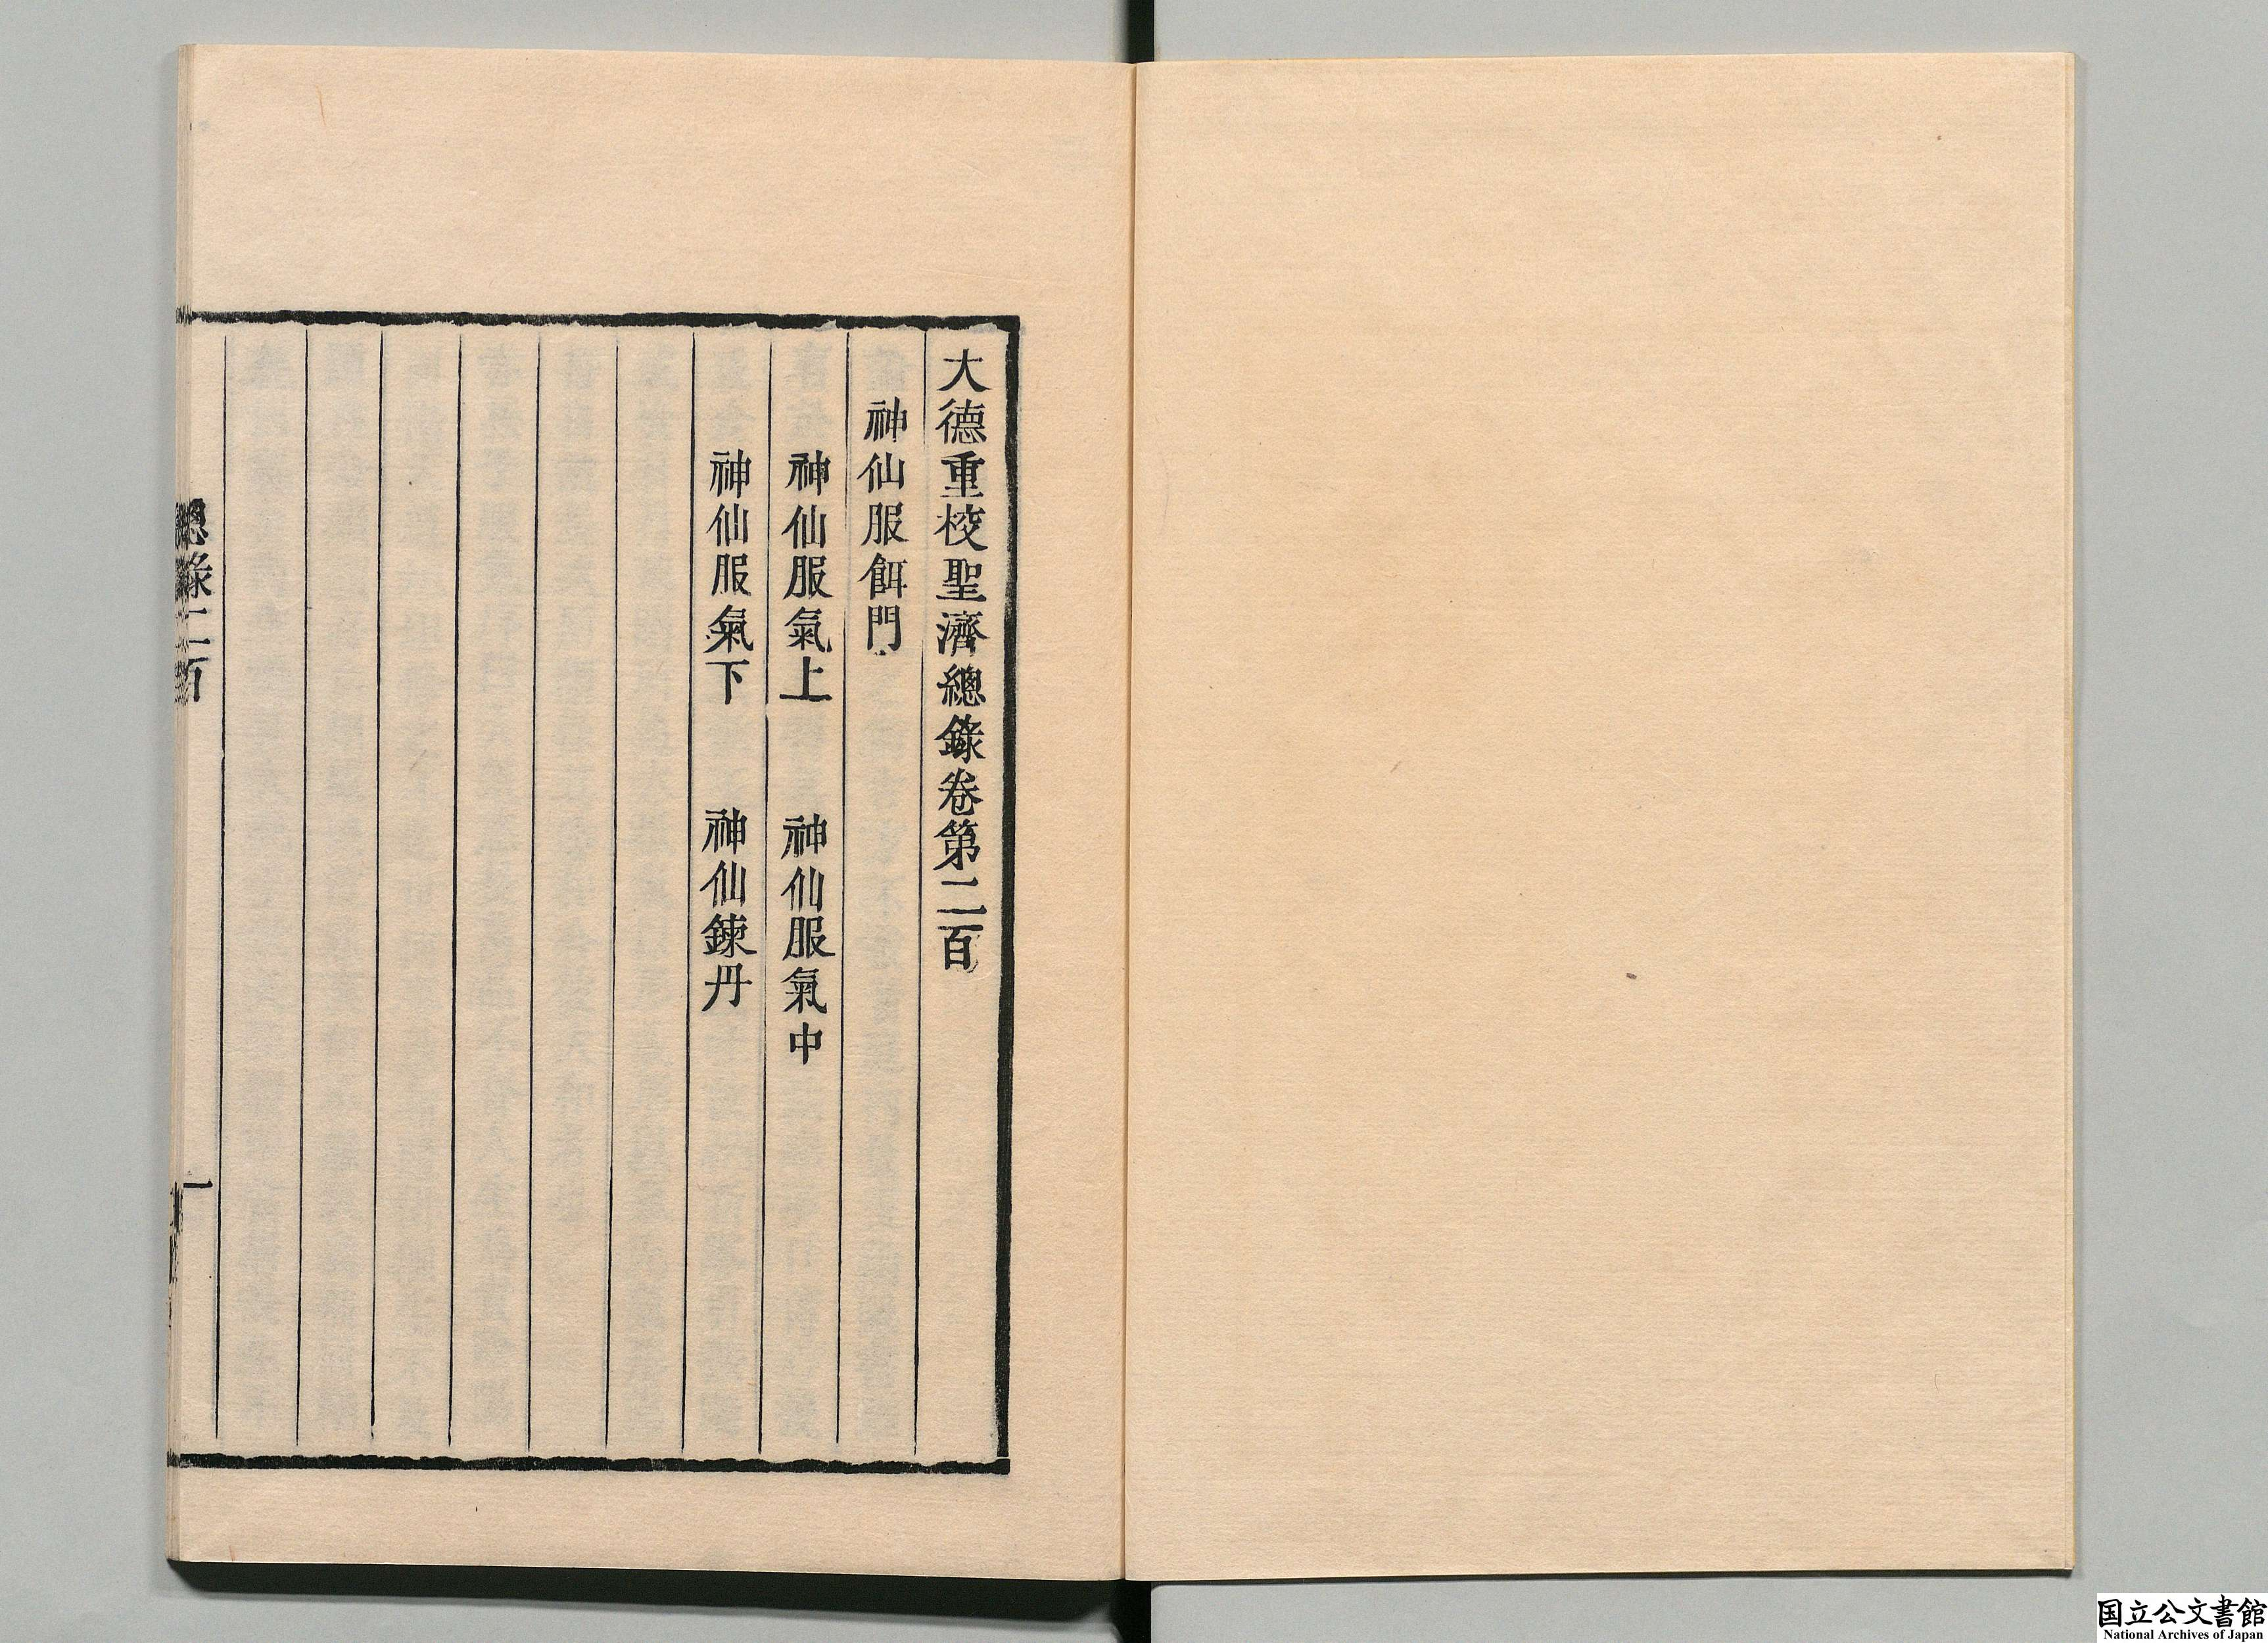 大德重校聖濟總錄卷第二百
神仙服餌門
神仙服氣上　神仙服氣中
神仙服氣下　神仙鍊丹
總錄二百
一
国立公文書館
National Archives of Japan